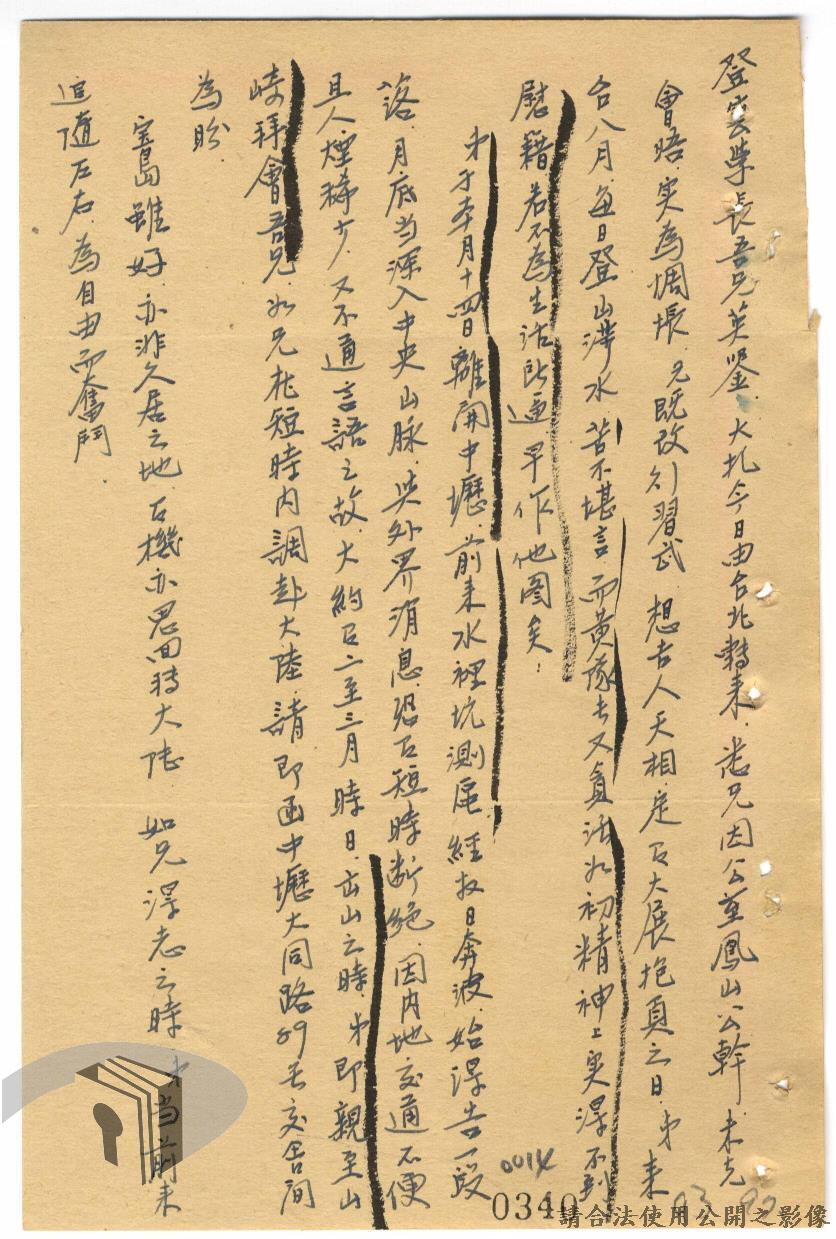 登雲學長吾兄英鑒 大札今日由台北轉來 悉兄因公至鳳山公幹 未克
會晤 实為惆悵 兄既改行習武 想吉人天相 定有大展抱負之日 弟来
台八月 每日登山涉水 苦不堪言 而黃隊長又貪污如初 精神上实淂不到
慰藉 若不為生活所逼 早作他图矣！
弟于本月十四日離開中壢 前来水裡坑測區 經数日奔波 始淂告一段
落 月底当深入中央山脉 与外界消息 恐有短時断绝 因内地交通不便
且人煙稀少 又不通言語之故 大約有二至三月時日 出山之時 弟即親至山
崎拜會吾兄 如兄於短時内調赴大陸 請即函中壢大同路89号交舍間
為盼
寳島雖好 亦非久居之地 有機亦思回轉大陆 如兄淂志之時 弟当前来
追隨左右 為自由而奮鬥
0014
0340
請合法使用公開之影像